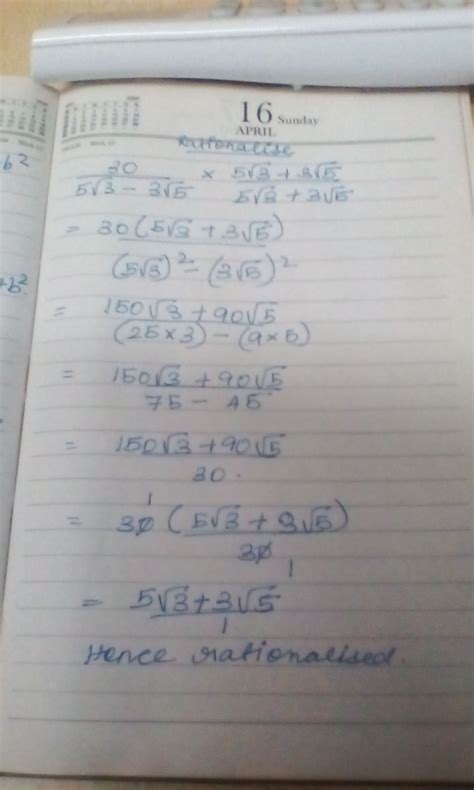 16 Sunday
APRIL
b²
+b²
Rationalise
30 / 5√3 - 3√5 × 5√3 + 3√5 / 5√3 + 3√5
= 30 (5√3 + 3√5) / (5√3)² - (3√5)²
= 150√3 + 90√5 / (25×3) - (9×5)
= 150√3 + 90√5 / 75 - 45
= 150√3 + 90√5 / 30.
= 30 1 (5√3 + 3√5) / 30 1
= 5√3 + 3√5 / 1
Hence rationalised.